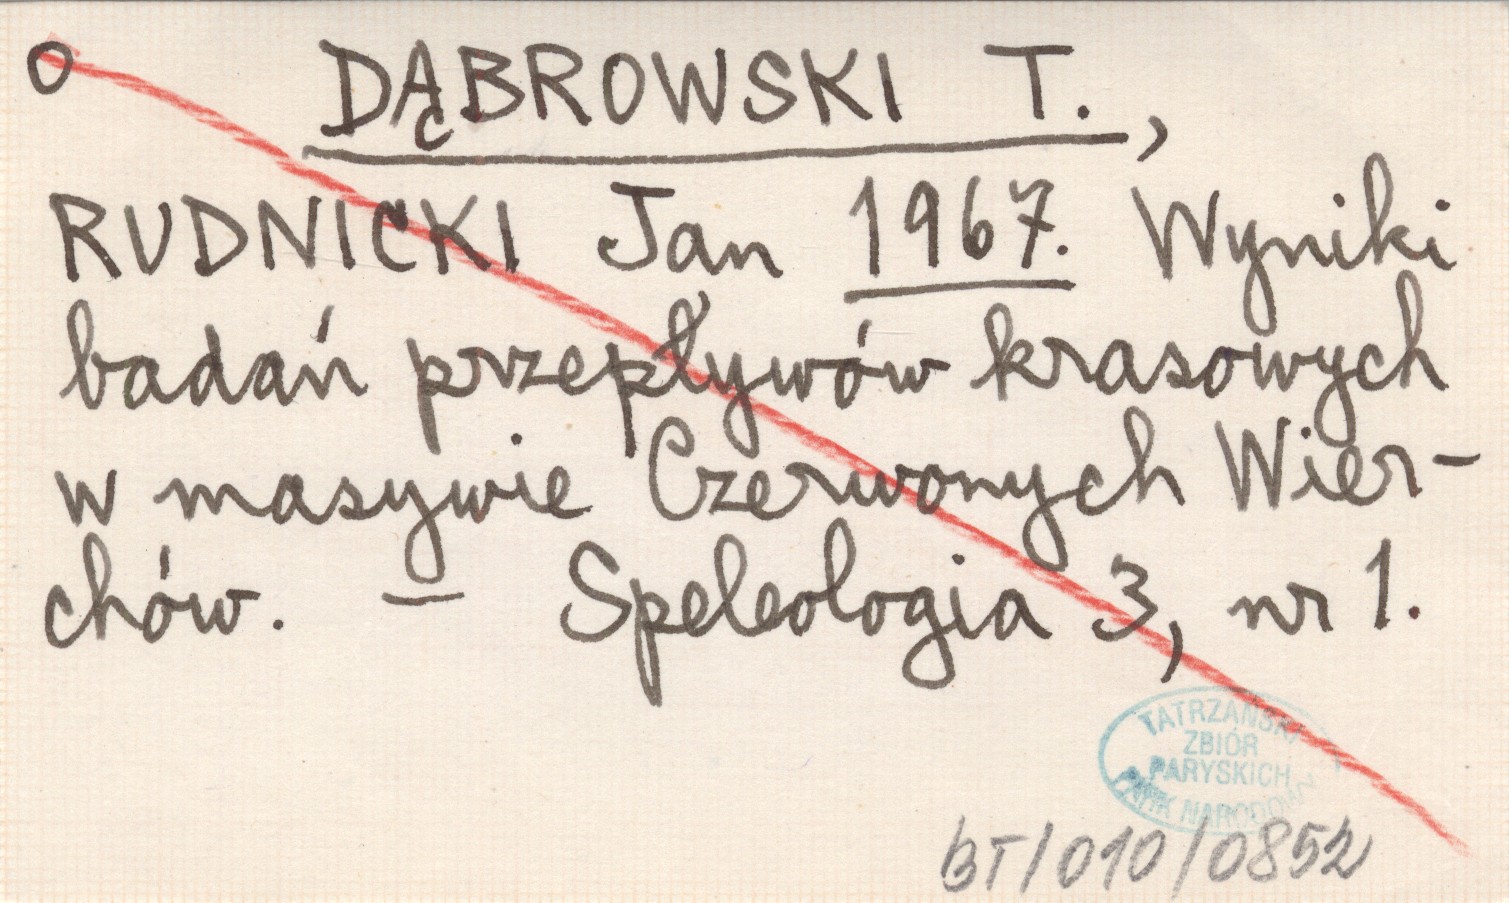 o DĄBROWSKI T.,
RUDNICKI Jan 1967. Wyniki
badań przepływów krasowych
w masywie Czerwonych Wier-
chów. — Speleologia 3, nr 1.
TATRZAŃSKI
ZBIÓR
PARYSKICH
PARK NARODOWY
BT/010/0852